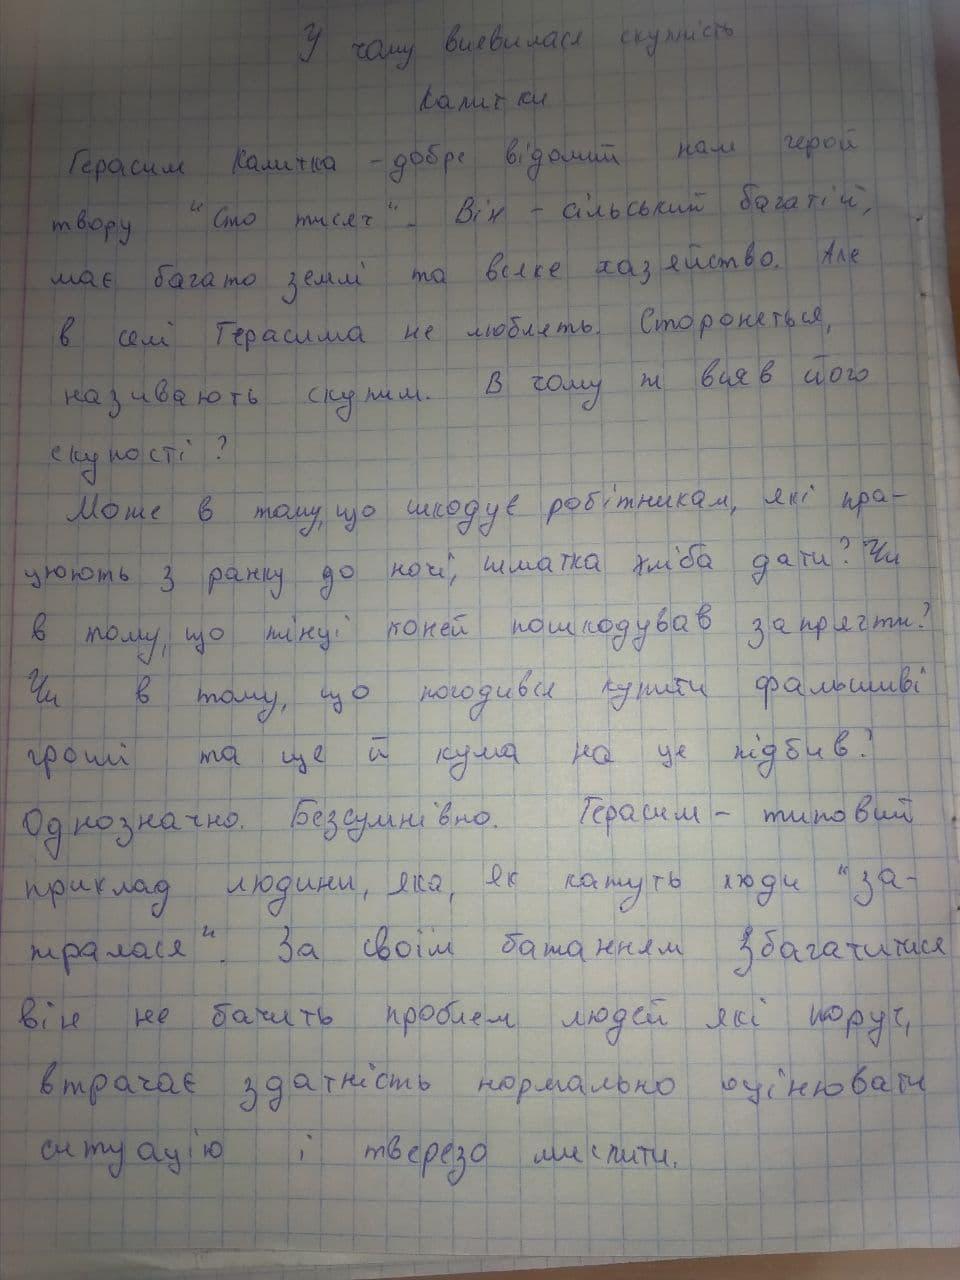 У чому виявилася скупість
Калитки
Герасим Калитка - добре відомий нам герой
твору "Сто тисяч". Він - сільський багатій,
має багато землі та всяке хазяйство. Але
в селі Герасима не люблять. Стороняться,
називають скупим. В чому ж вияв його
скупості?
Може в тому, що шкодує робітникам, які пра-
цюють з ранку до ночі, шматка хліба дати? Чи
в тому, що жінці коней пошкодував запрягти?
Чи в тому, що погодився купити фальшиві
гроші та ще й кума на це підбив?
Однозначно. Безсумнівно. Герасим - типовий
приклад людини, яка, як кажуть люди "за-
жралася". За своїм бажанням збагатитися
він не бачить проблем людей які поруч,
втрачає здатність нормально оцінювати
ситуацію і твереза мислити.